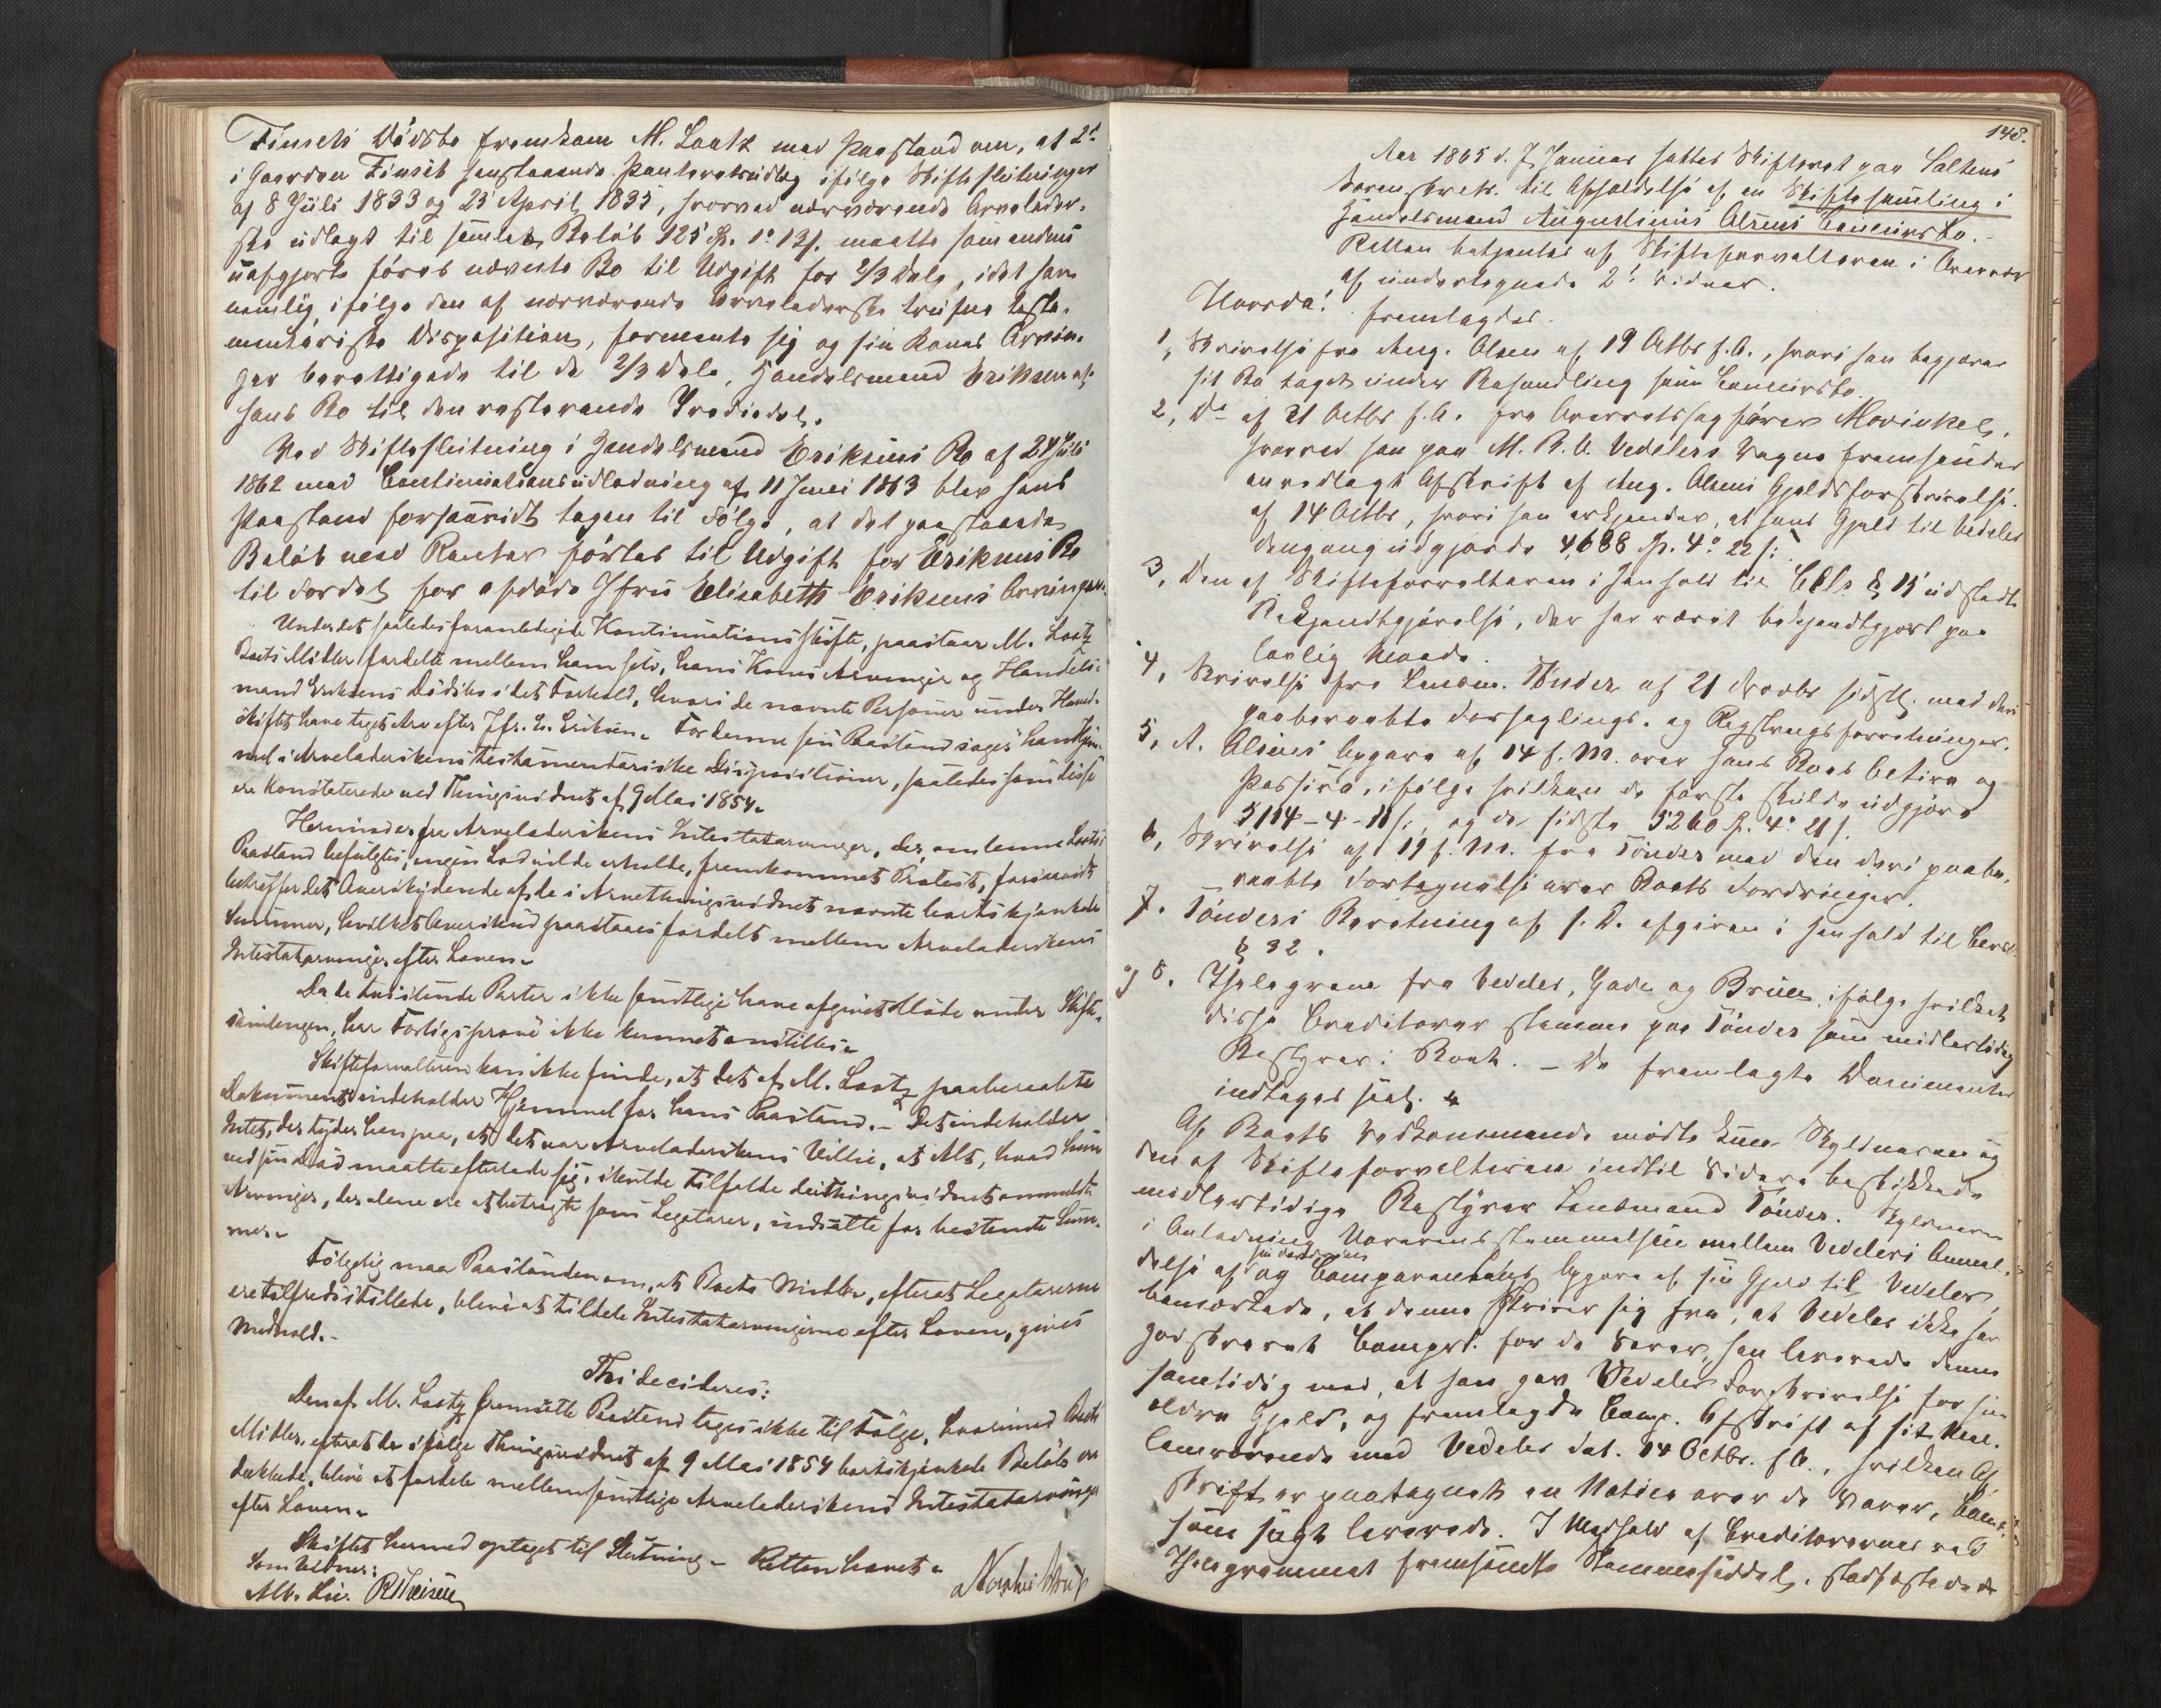 Finseth Dødsbo fremkom M. Laatz med Paastand om, at 2de
i Gaarden Finset henstaaende Panteretsudlæg ifølge Skifteslutninger
af 8 Juli 1833 og 25 April 1835, hvorved nærværende Arvelader-
ske udlagt til samlet Beløb 125 Sp. 1 º 13 s. maatte som endnu
uafgjorte føres nævnte Bo til Udgift for 2/3 Dele, idet han
nemlig, ifølge den af nærværende Arveladerske trufne testa-
mentariske Disposition, formente sig og sin Kones Arvin-
ger berettigede til de 2/3 Dele, Handelsmand Eriksen
hans Bo til den resterende Trediedel.
Ved Skifteslutning i Handelsmand Eriksens Bo af 24 Juli
1862 med Continuationsudlodning af 11 Juni 1863 blev hans
Paastand forsaavidt tagen til Følge, at det paastaaede
Beløb med Renter førtes til Udgift for Eriksens Bo
til Fordel for afdøde Jfru Elisabeth Eriksens Arvinger.
Under det saaledes foranledigede Kontinuationsskifte, paastaar M. Laatz
Boets Midler fordelte mellem ham selv, hans Kones Arvinger og Handels-
mand Eriksens Dødsbo i det Forhold, hvori de nævnte Personer under Hoved-
skiftet have taget Arv efter Jfr. E. Eriksen. For denne sin Paastand søger han Hjem-
mel i Arveladerskens testamentariske Dispositioner, saaledes som disse
ere konstaterede ved Thingsvidnet af 9 Mai 1854.
Herimod er fra Arveladerskens Intestatarvinger, der, om denne Laatz's
Paastand befulgtes, ingen Lod vilde erholde, fremkommet Protest, forsaavidt
betræffer det Overskydende af de i Thingsvidnet nævnte bortskjænkede
Summer, hvilket Overskud paastaaes fordelt mellem Arveladerskens
Intestatarvinger efter Loven.
Da de tvistende Parter ikke samtlige have afgivet Møde under Skifte-
samlingen, har Forligsprøve ikke kunnet anstilles.
Skifteforvalteren kan ikke finde, at det af M. Laatz paaberaabte
Dokument indeholder Hjemmel for hans Paastand. – Det indeholder
Intet, der tyder hen paa, at det var Arveladerskens Villie, at Alt, hvad hun
ved sin Død maatte efterlade sig, skulde tilfalde de i Thingsvidnet ommeldte
Arvinger, der alene ere at betragte som Legatarer, indsatte for bestemte Sum-
mer.
Følgelig maa Paastanden om, at Boets Midler, efterat Legatarerne
ere tilfredsstillede, blive at tildele Intestatarvingerne efter Loven, gives
Medhold. –
Thi decideres:
Den af M. Laatz fremsatte Paastand tages ikke til Følge, hvorimod Boets
Midler, efterat de ifølge Thingsvidnet af 9 Mai 1854 bortskjænkede Beløb ere
dækkede, blive at fordele mellem samtlige Arveladerskens Intestatarvinger
efter Loven.
Skiftet hermed optaget til Slutning. – Retten hævet.
Som Vidner:
Alb. Lie.
148.
Aar 1865 d. 7 Januar sattes Skifteret paa Saltens
Sorenskr. til Afholdelse af en Skiftesamling i
Handelsmand Augustinus Olsens Concursbo. –
Retten betjentes af Skifteforvalteren i Overvær
af undertegnede 2de Vidner.
Hvorda! fremlagdes
1, Skrivelse fra Aug. Olsen af 19 Octbr f. A., hvori han begjærer
sit Bo taget under Behandling som Concursbo.
2, Do af 21 Octbr f. A. fra Overretssagfører Mowinkel,
hvorved han paa M. R. A. Vedelers Vegne fremsender
en vedlagt Afskrift af Aug. Olsens Gjeldsforskrivelse
af 14 Octbr, hvori han erkjender, at hans Gjeld til Vedeler
dengang udgjorde 4,688 Sp. 4 º 22 s:
3, Den af Skifteforvalteren i Henhold til § 15 udstedte
Bekjendtgjørelse, der har været bekjendtgjort paa
lovlig Maade.
4, Skrivelse fra Lensm. Tønder af 21 Novbr sidstl. med deri
paaberaabte Forseglings- og Registreringsforretninger.
5, A. Olsens Opgave af 14 f. M. over hans Boes Activa og
Passiva, ifølge hvilken de første skulde udgjøre
5114 – 4 – 11 s:, og de sidste 5260 Sp. 4 º 21 s.
6, Skrivelse af 19 f. M. fra Tønder med den deri paabe-
raabte Fortegnelse over Boets Fordringer.
7. Tønders Beretning af s. D. afgiven i Henhold til
§ 32.
og 8. Thelegram fra Vedeler, Gade og Bruun, ifølge hvilket
disse Creditorer stemme paa Tønder som midlertidig
Bestyrer i Boet. – De fremlagte Documenter
indtages saal.
Af Boets Vedkommende mødte kun Skyldneren og
den af Skifteforvalteren indtil Videre beskikkede
midlertidige Bestyrer Lensmand Tønder. Skyldneren
i Anledning Uoverensstemmelsen mellem Vedelers Anmel-
delse af sin Fordring og Comparentens Opgave af sin Gjeld til Vedeler,
bemærkede, at denne skriver sig fra, at Vedeler ikke har
godskrevet Comprt. for de Varer, han leverede denne
samtidig med, at han gav Vedeler Forskrivelse for sin
ældre Gjeld, og fremlagde Comp. Afskrift af sit Mel-
lemværende med Vedeler dat. 14 Octbr. f. A., hvilken Af-
skrift er paategnet en Notice over de Varer, Comp.
som sagt leverede. I Medhold af Creditorernes ved
Thelegrammet fremsendte Stemmeseddel, stadfæstede